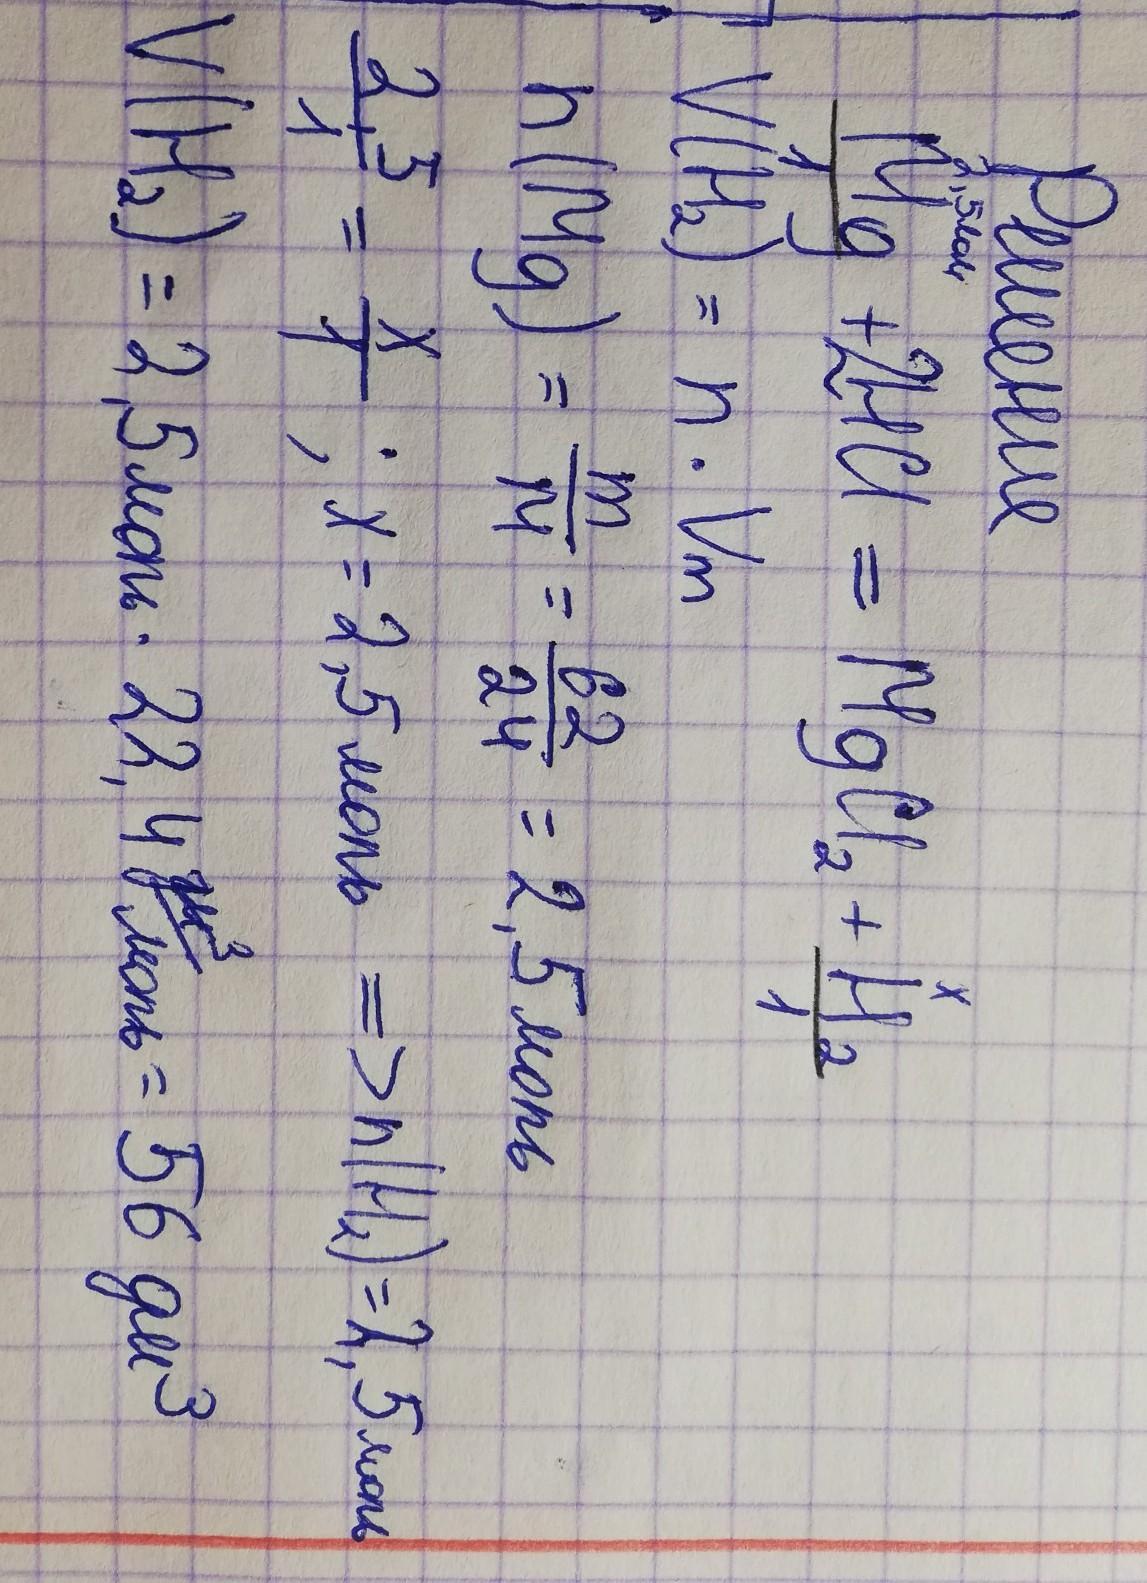 Решение
2,5моль x
Mg + 2HCl = MgCl₂ + H₂
1 1
V(H₂) = n · Vm
n(Mg) = m/M = 62/24 = 2,5 моль
2,5/1 = x/1 ; x = 2,5 моль => n(H₂) = 2,5 моль
V(H₂) = 2,5 моль · 22,4 /моль = 56 дм³